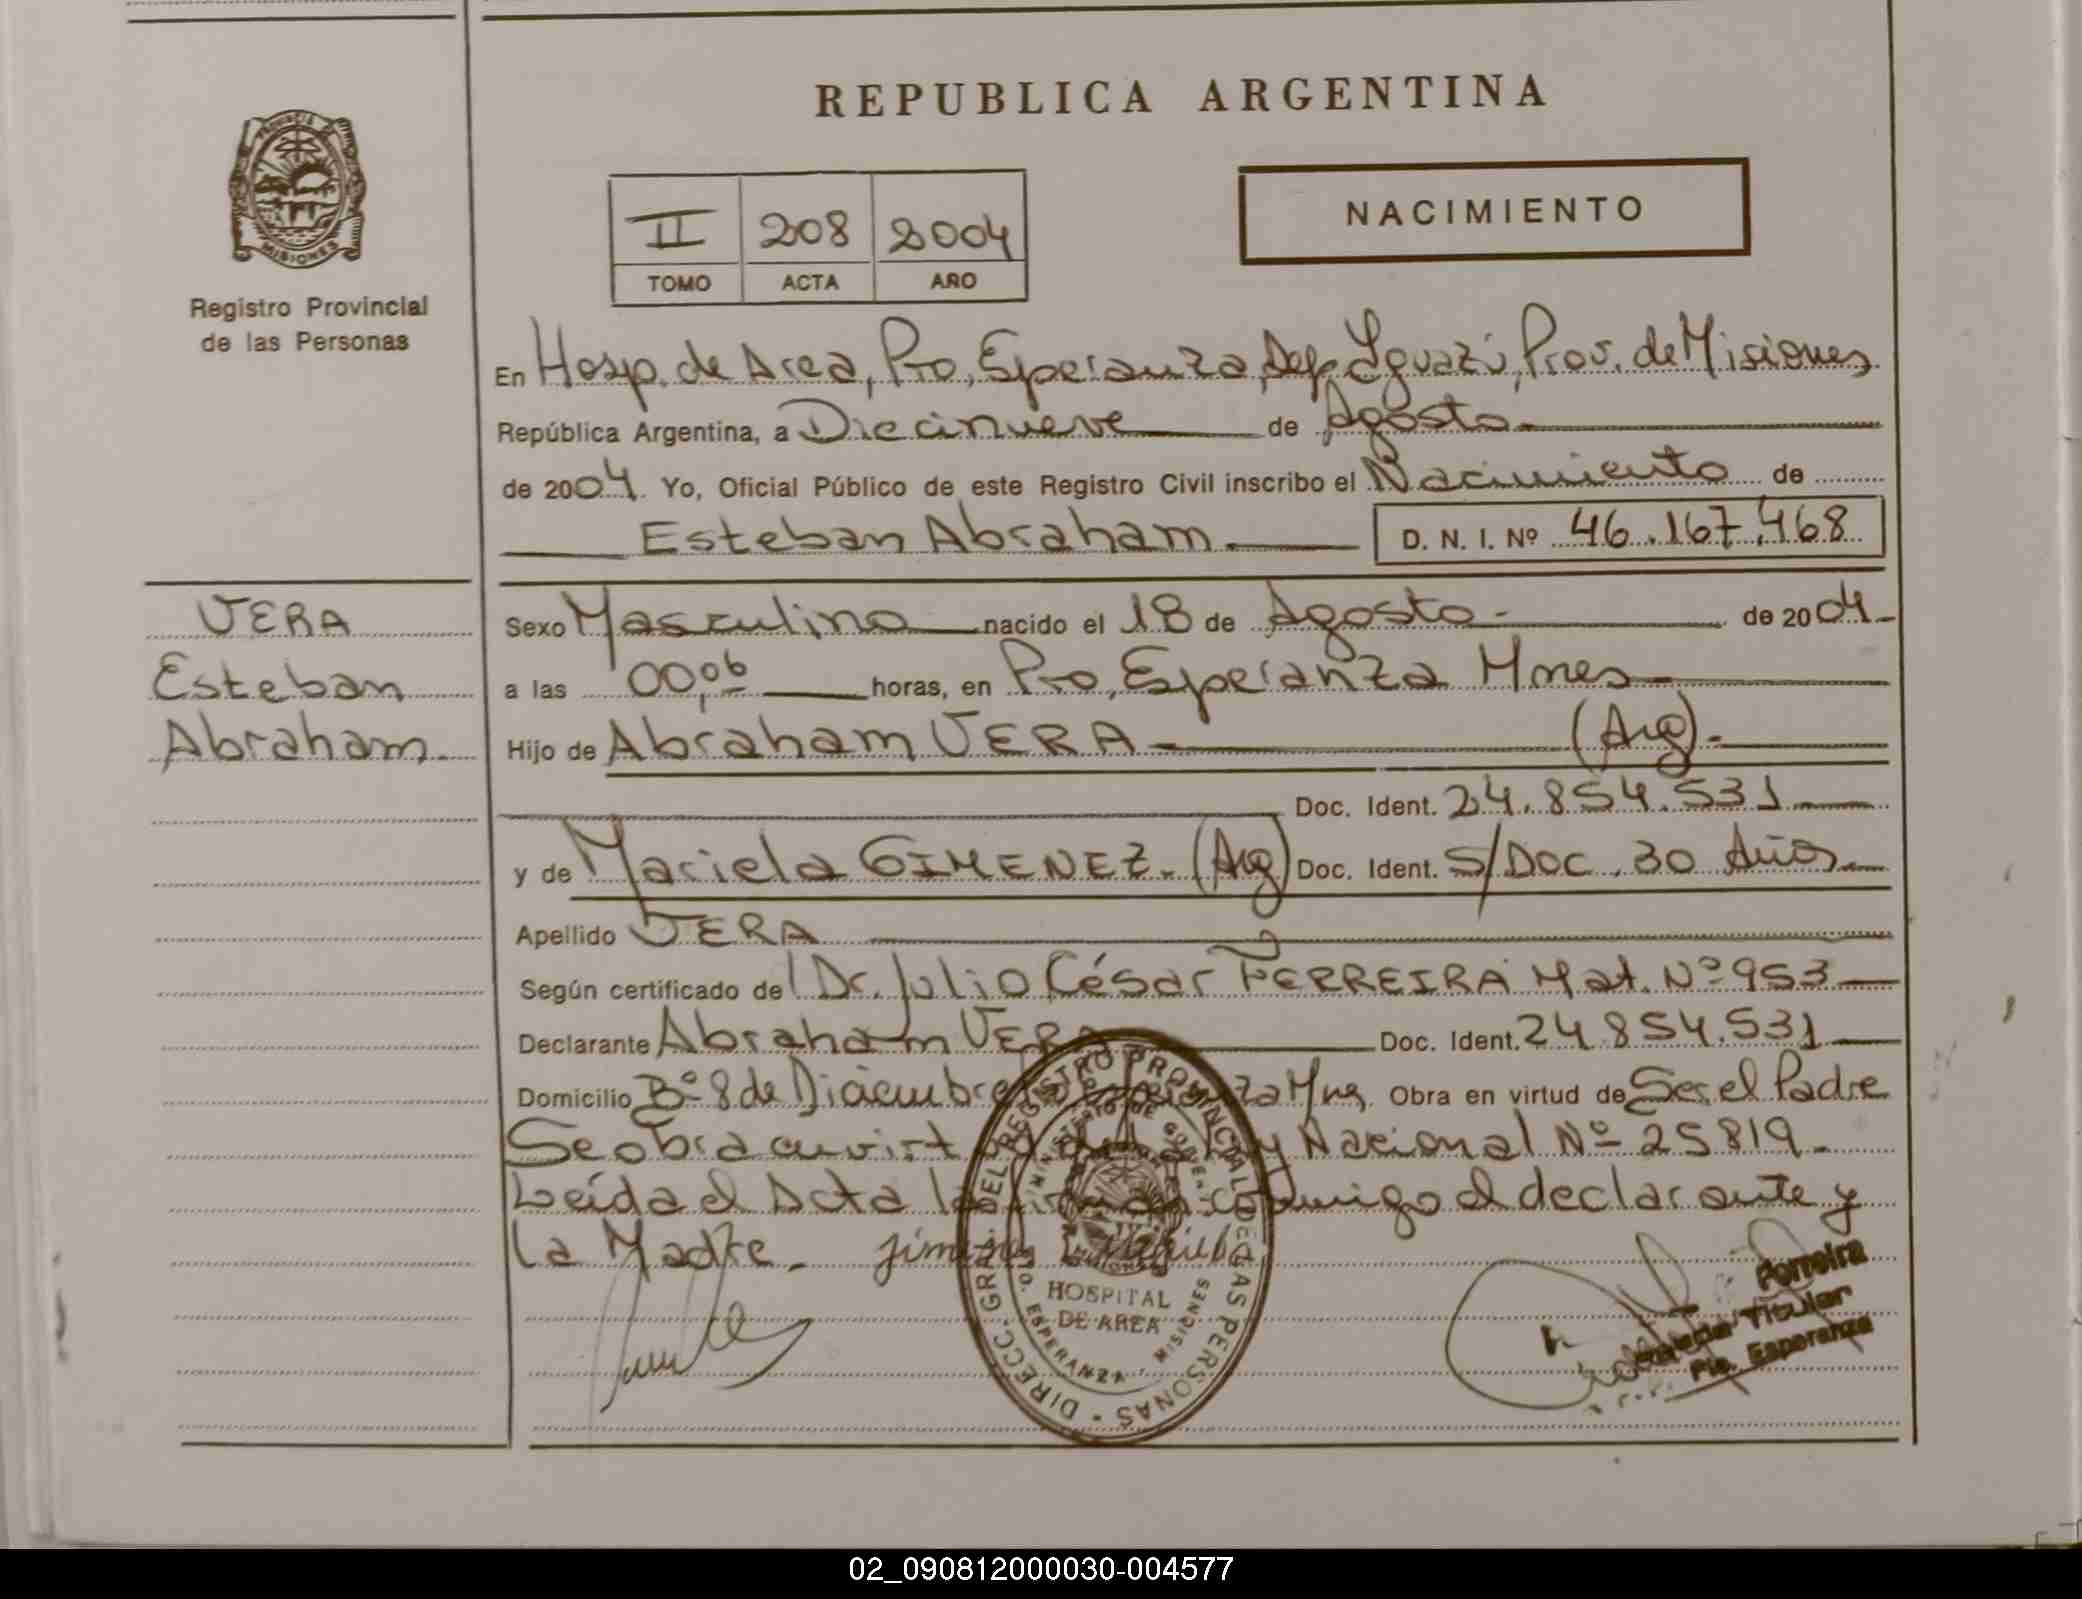 REPUBLICA ARGENTINA
PROVINCIA DE
MISIONES
Registro Provincial
de las Personas
II 208 2004
TOMO ACTA AÑO
NACIMIENTO
En Hosp. de Area, Pto, Esperanza, Dep. Iguazú, Prov. de Misiones
República Argentina, a Diecinueve de Agosto
de 2004. Yo, Oficial Público de este Registro Civil inscribo el Nacimiento de
Esteban Abraham. D. N. I. Nº 46.167.468
VERA
Esteban
Abraham.
Sexo Masculino nacido el 18 de Agosto - de 2004 -
a las 00,06 horas, en Pto, Esperanza Mnes
Hijo de Abraham VERA - (Arg).
Doc. Ident. 24.854.531
y de Mariela GIMENEZ. (Arg) Doc. Ident. S/DOC. 30 Años.
Apellido VERA
Según certificado del Dr. Julio César FERREIRA Mat. Nº 953
Declarante Abraham VERA Doc. Ident. 24.854.531
Domicilio Bº 8 de Diciembre Esperanza Mnes. Obra en virtud de Ser el Padre
Se obra en virt Ley Nacional Nº 25819.
Leída el Acta la firman conmigo el declarante y
la Madre.
DIRECC. GRAL. DEL REGISTRO PROVINCIAL DE LAS PERSONAS
MINISTERIO DE GOBIERNO
MISIONES
HOSPITAL
DE AREA
PTO. ESPERANZA - MISIONES
Ferreira
Titular
Pto. Esperanza
02_090812000030-004577